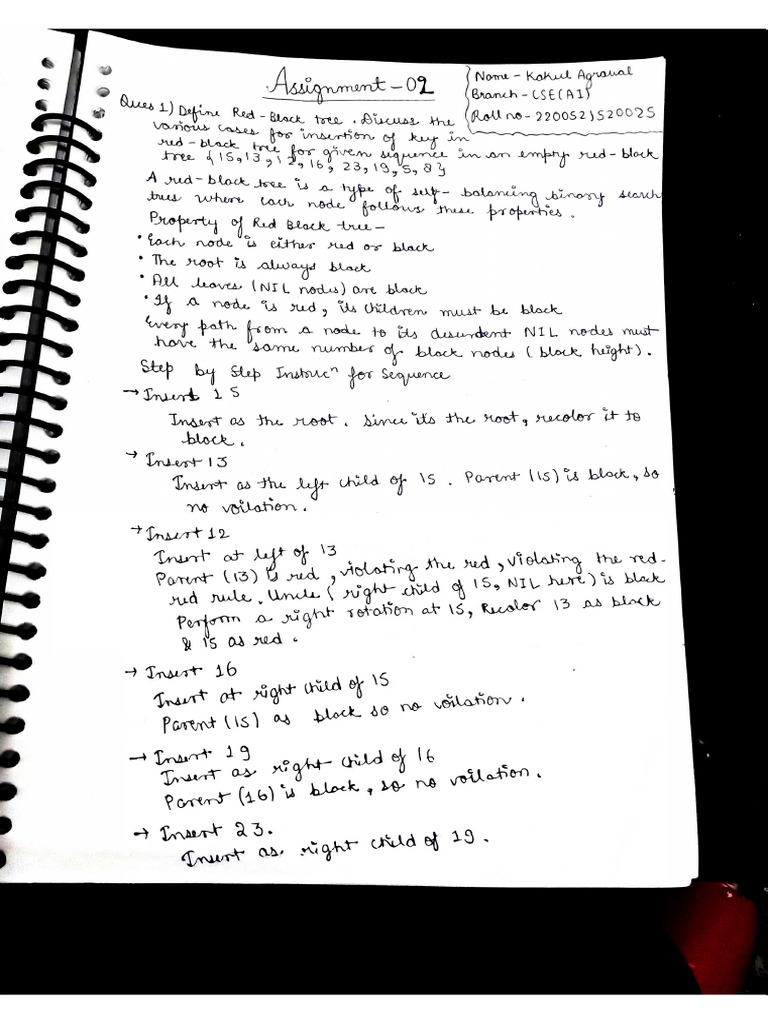 Assignment-02
Name - Kakul Agrawal
Branch - CSE(AI)
Roll no - 2200521520025
Ques 1) Define Red-Black tree. Discuss the
various cases for insertion of key in
red-black tree for given sequence in an empty red-black
tree {15,13,12,16, 23,19,5,8}
A red-black tree is a type of self-balancing binary search
tree where each node follows these properties.
Property of Red Black tree -
• Each node is either red or black
• The root is always black
• All leaves (NIL nodes) are black
• If a node is red, its children must be black
Every path from a node to its desendent NIL nodes must
have the same number of black nodes (black height).
Step by Step Instrucⁿ for Sequence
→ Insert 15
Insert as the root. Since its the root, recolor it to
black.
→ Insert 13
Insert as the left child of 15. Parent (15) is black, so
no voilation.
→ Insert 12
Insert at left of 13
Parent (13) is red, violating the red, violating the red-
red rule. Uncle (right child of 15, NIL here) is black
Perform a right rotation at 15, Recolor 13 as black
& 15 as red.
→ Insert 16
Insert at right child of 15
Parent (15) as black so no voilation.
→ Insert 19
Insert as right child of 16
Parent (16) is black, so no voilation.
→ Insert 23.
Insert as right child of 19.